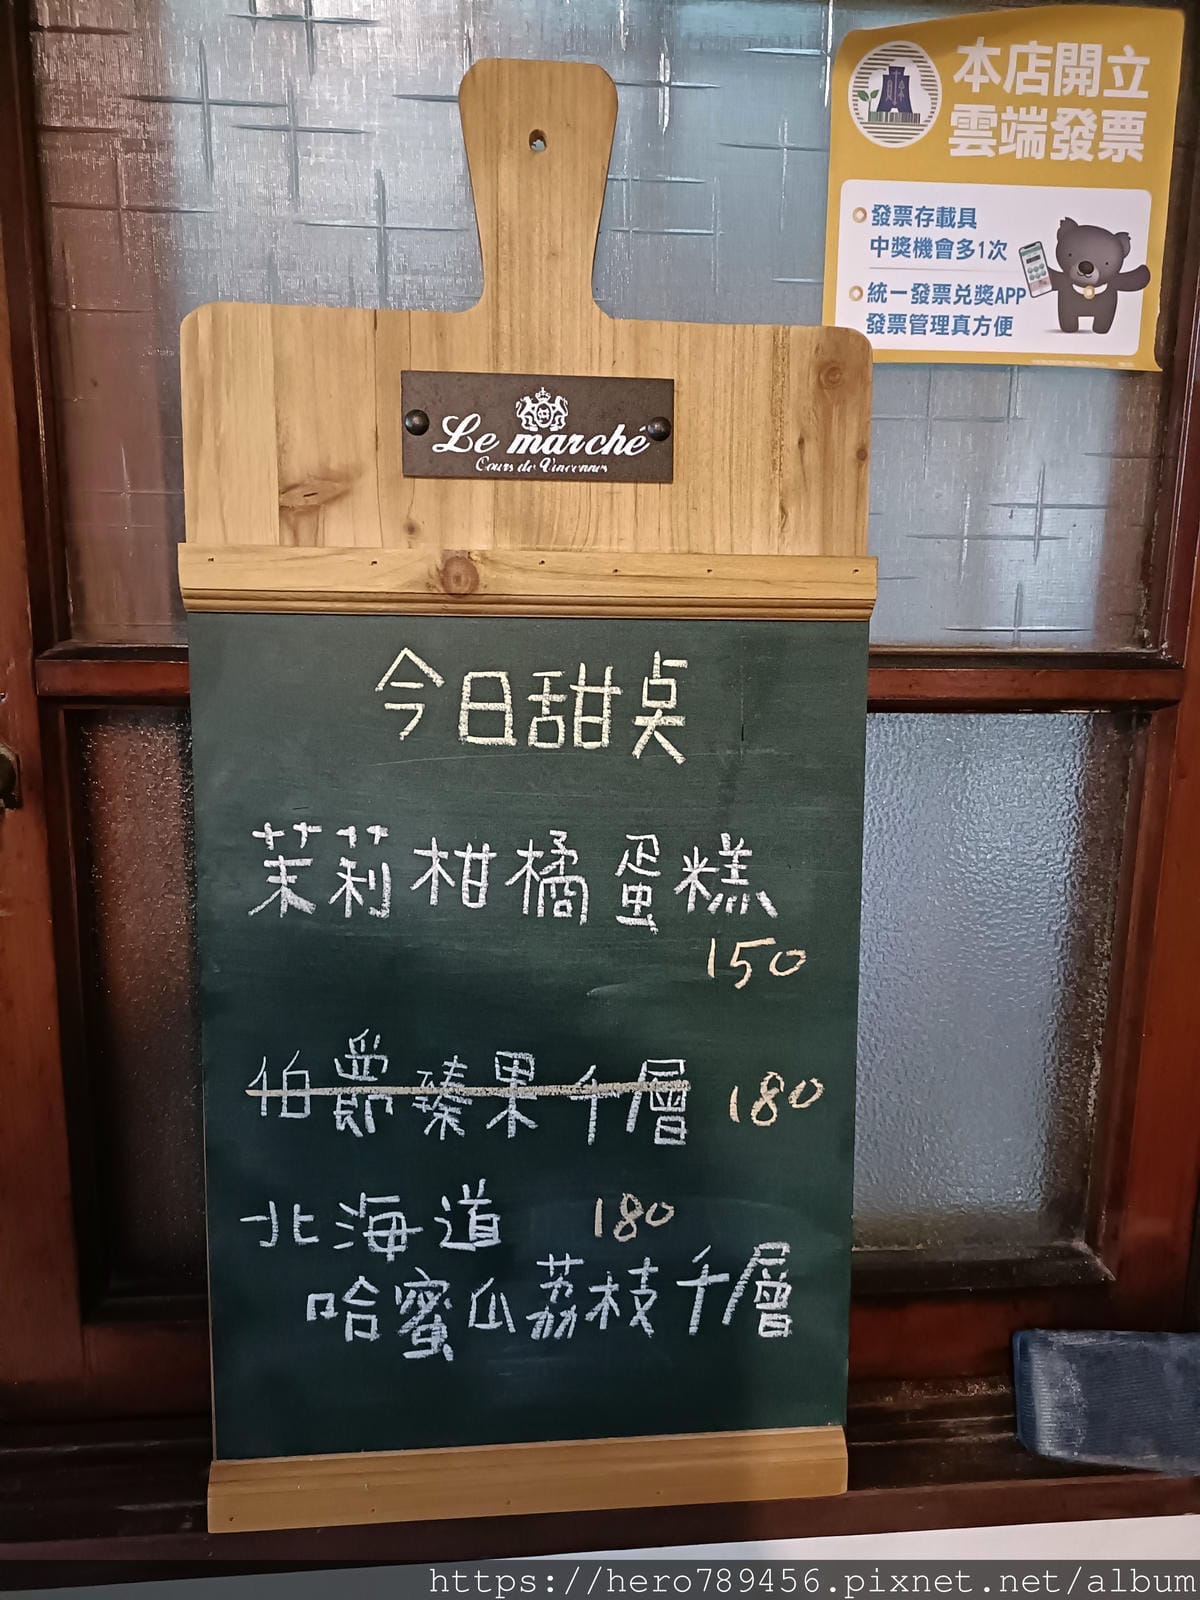 本店開立
雲端發票
發票存載具
中獎機會多1次
統一發票兌獎APP
發票管理真方便
Le marché
Cours de Vincennes
今日甜点
茉莉柑橘蛋糕
150
伯爵臻果千層 180
北海道 180
哈蜜瓜荔枝千層
https://hero789456.pixnet.net/album